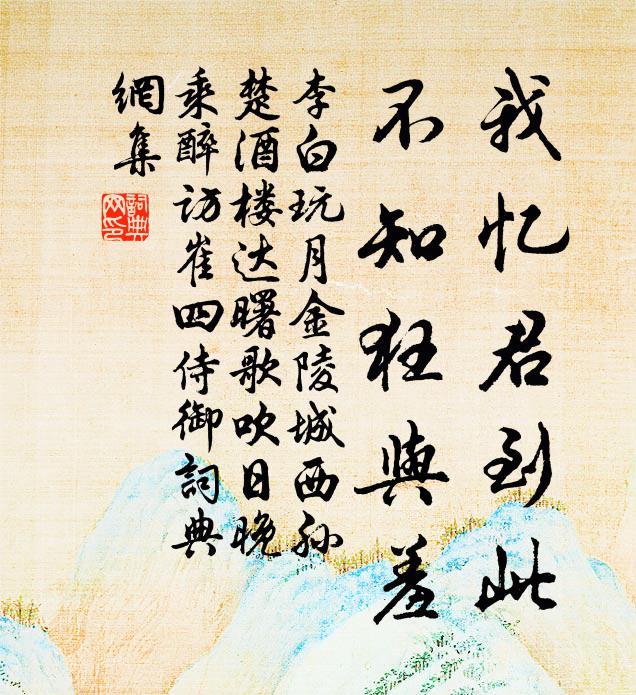 我忆君到此
不知狂与羞
李白玩月金陵城西孙
楚酒楼达曙歌吹日晚
乘醉访崔四侍御詞典
網集
詞典
网印